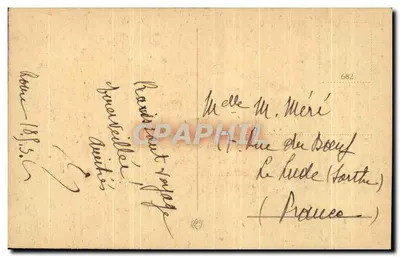 Rome 18.5.
Ravissant voyage
émerveillée
Amitiés
682
Mdlle M. Méré
17 Rue du Boeuf
Le Lude (Sarthe)
(France)
CPAPHIL